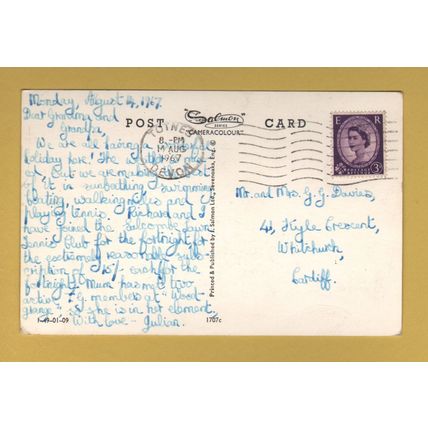 Monday, August 14, 1967.
Dear Grandma and
Grandpa,
We are all having a
holiday here! The
but we are making
of it in sunbathing, swimming,
boating, walking
play g tennis. Richard and I
have joined the Salcombe Lawn
Tennis Club for the fortnight for
the extremely reasonable subs-
cription of 10/- each for the
fortnight. Mum has met two
artist members at "Wood
grange" so she is in her element.
With love - Julian.
1-49-01-09
POST
"Salmon
SERIES
"CAMERACOLOUR"
CARD
TOTNES
8 - PM
14 AUG
1967
DEVON
E R
POSTAGE REVENUE
3D
Printed & Published by J. Salmon Ltd., Sevenoaks, Eng. ©
1707c
Mr. and Mrs. G. G. Davies,
41, Kyle Crescent,
Whitchurch,
Cardiff.